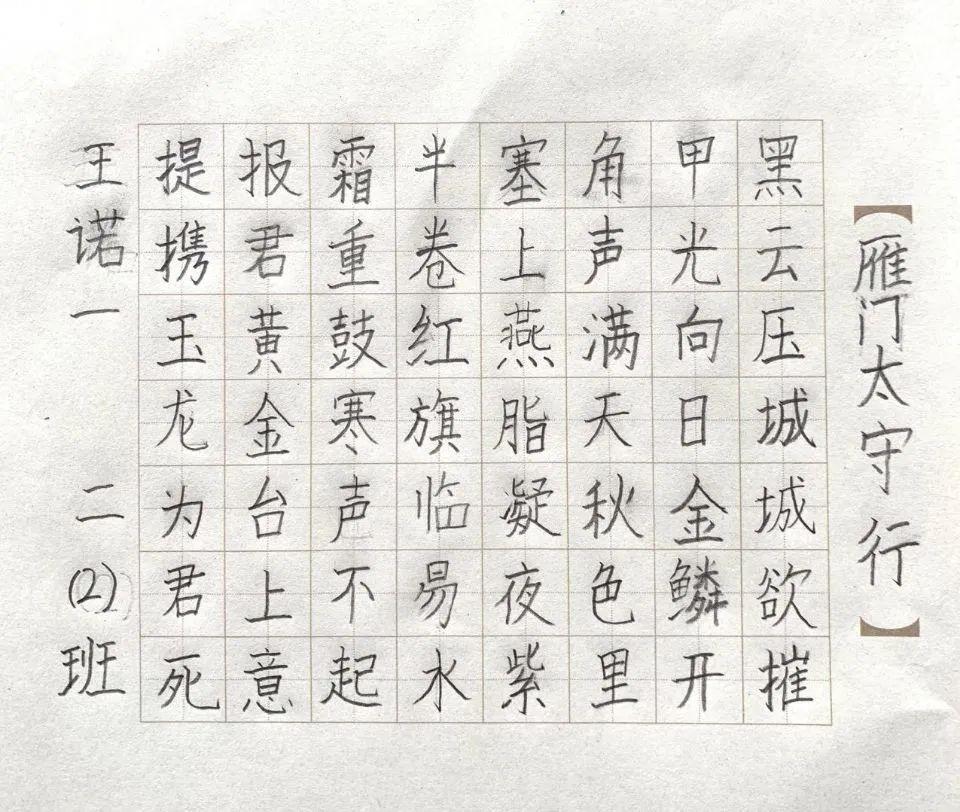 【雁门太守行】
黑云压城城欲摧
甲光向日金鳞开
角声满天秋色里
塞上燕脂凝夜紫
半卷红旗临易水
霜重鼓寒声不起
报君黄金台上意
提携玉龙为君死
王诺一 二(2)班